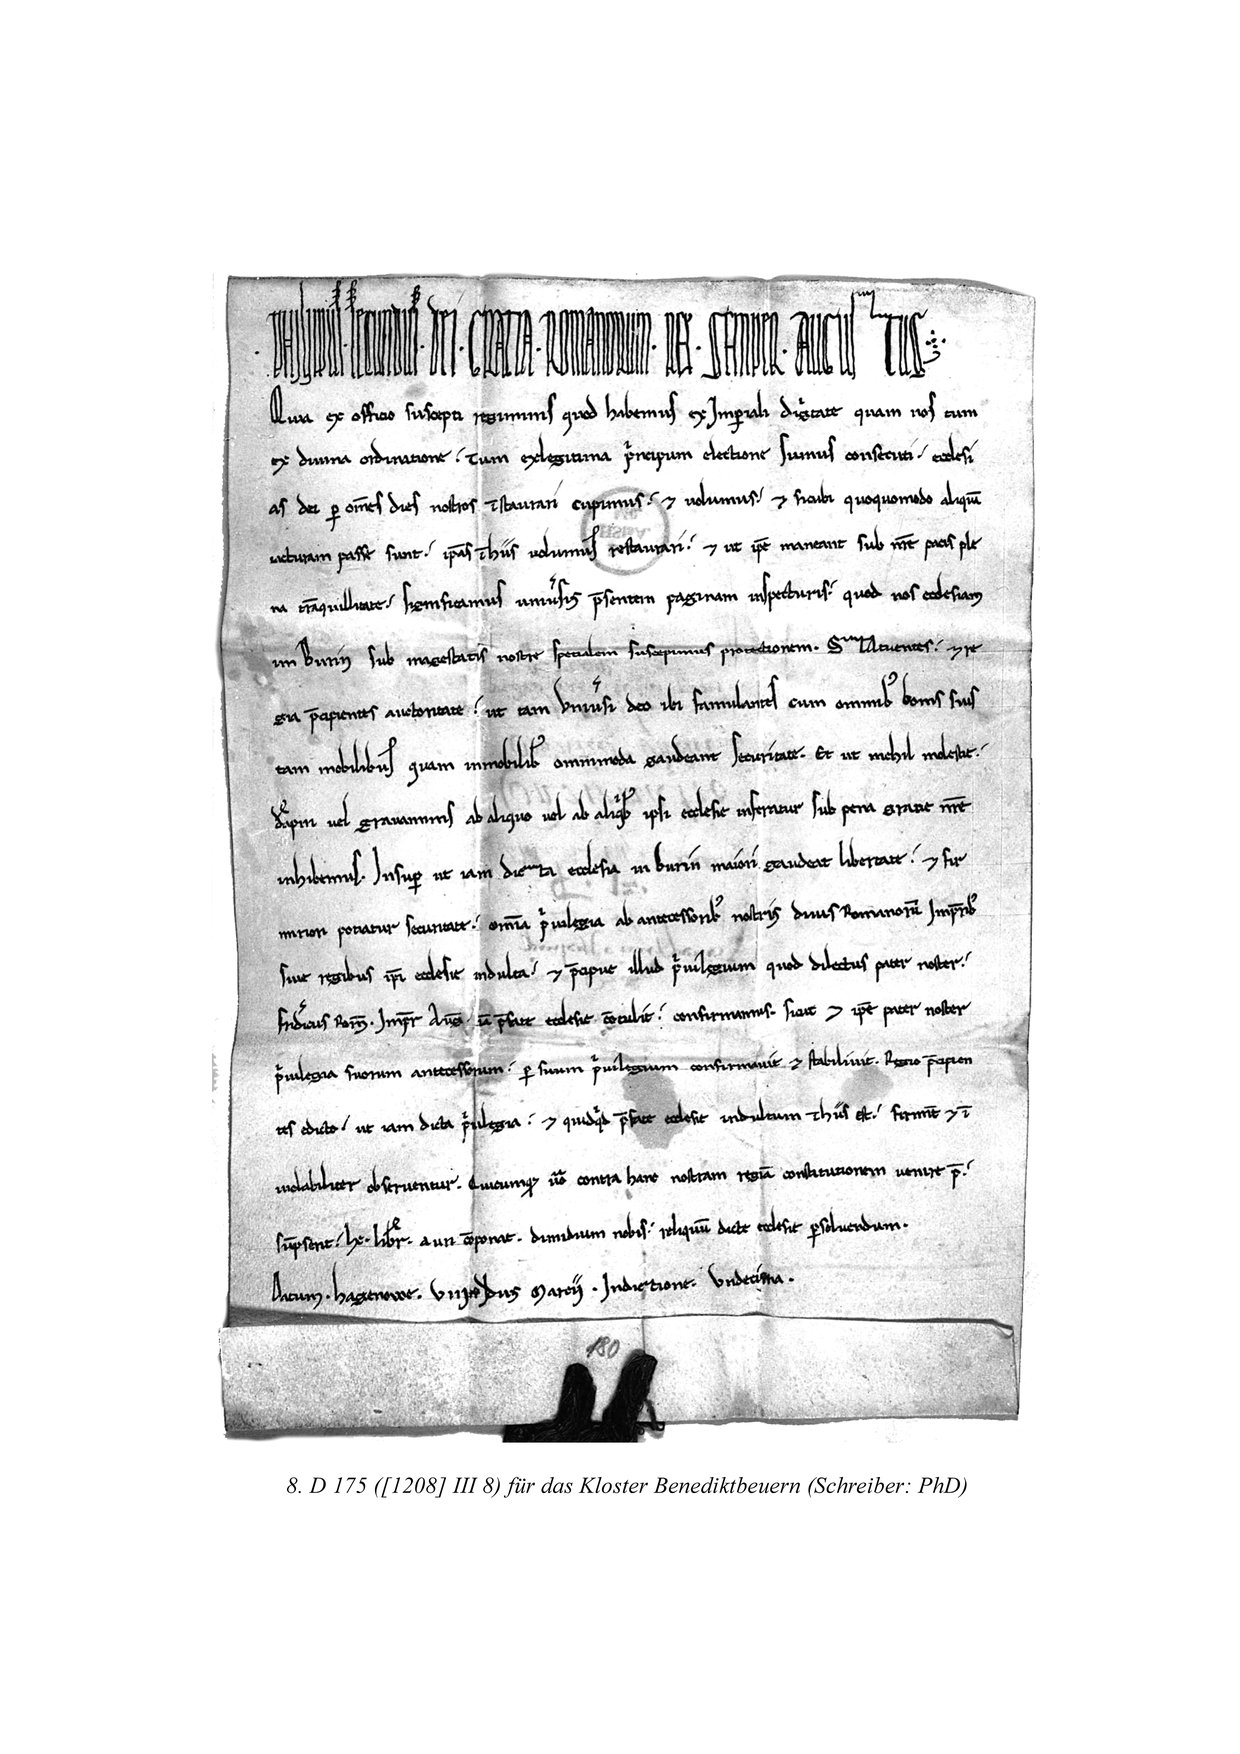 philippus · secundus · dei · Gracia · Romanorum · rex · semper · augustus
Quia ex officio suscepti regiminis quod habemus ex Imperiali dignitate quam nos tum
ex diuina ordinatione tum ex legitima principum electione sumus consecuti ecclesi
as dei per omnes dies nostros instaurari cupimus ⁊ uolumus ⁊ sicubi quoquomodo aliquam
iacturam passe sunt ipsas in hiis uolumus restaurari ⁊ ut ipse maneant sub nostre pacis ple
na tranquillitate significamus uniuersis presentem paginam inspecturis quod nos ecclesiam
in Burin sub magestatis nostre specialem suscepimus protectionem. Statuentes ⁊ re
gia precipientes auctoritate ut tam Vniuersi deo ibi famulantes cum omnibus bonis suis
tam mobilibus quam inmobilibus omnimoda gaudeant securitate. Et ut nichil molestie
dampni uel grauaminis ab aliquo uel ab aliquibus ipsi ecclesie inferatur sub pena gratie nostre
inhibemus. Insuper ut iam dicta ecclesia in burin maiori gaudeat libertate ⁊ fir
miori potiatur securitate omnia priuilegia ab antecessoribus nostris diuis Romanorum Imperatoribus
siue regibus ipsi ecclesie indulta ⁊ precipue illud priuilegium quod dilectus pater noster
fridericus Rom. Imper Aug. iam prefate ecclesie contulit confirmamus. sicut ⁊ ipse pater noster
priuilegia suorum antecessorum per suum priuilegium confirmauit ⁊ stabiliuit. Regio precipien
tes edicto ut iam dicta priuilegia ⁊ quidquid prefate ecclesie indultum in hiis est firmiter ⁊ in
uiolabiliter obseruentur. Quicumque uero contra hanc nostram regiam constitutionem uenire pre
sumpserit lx. libras. auri componat. dimidium nobis reliquum dicte ecclesie persoluendum.
Datum. hagenowe. VIII Idus Marcii. Indictione. Vndecima.
180
8. D 175 ([1208] III 8) für das Kloster Benediktbeuern (Schreiber: PhD)